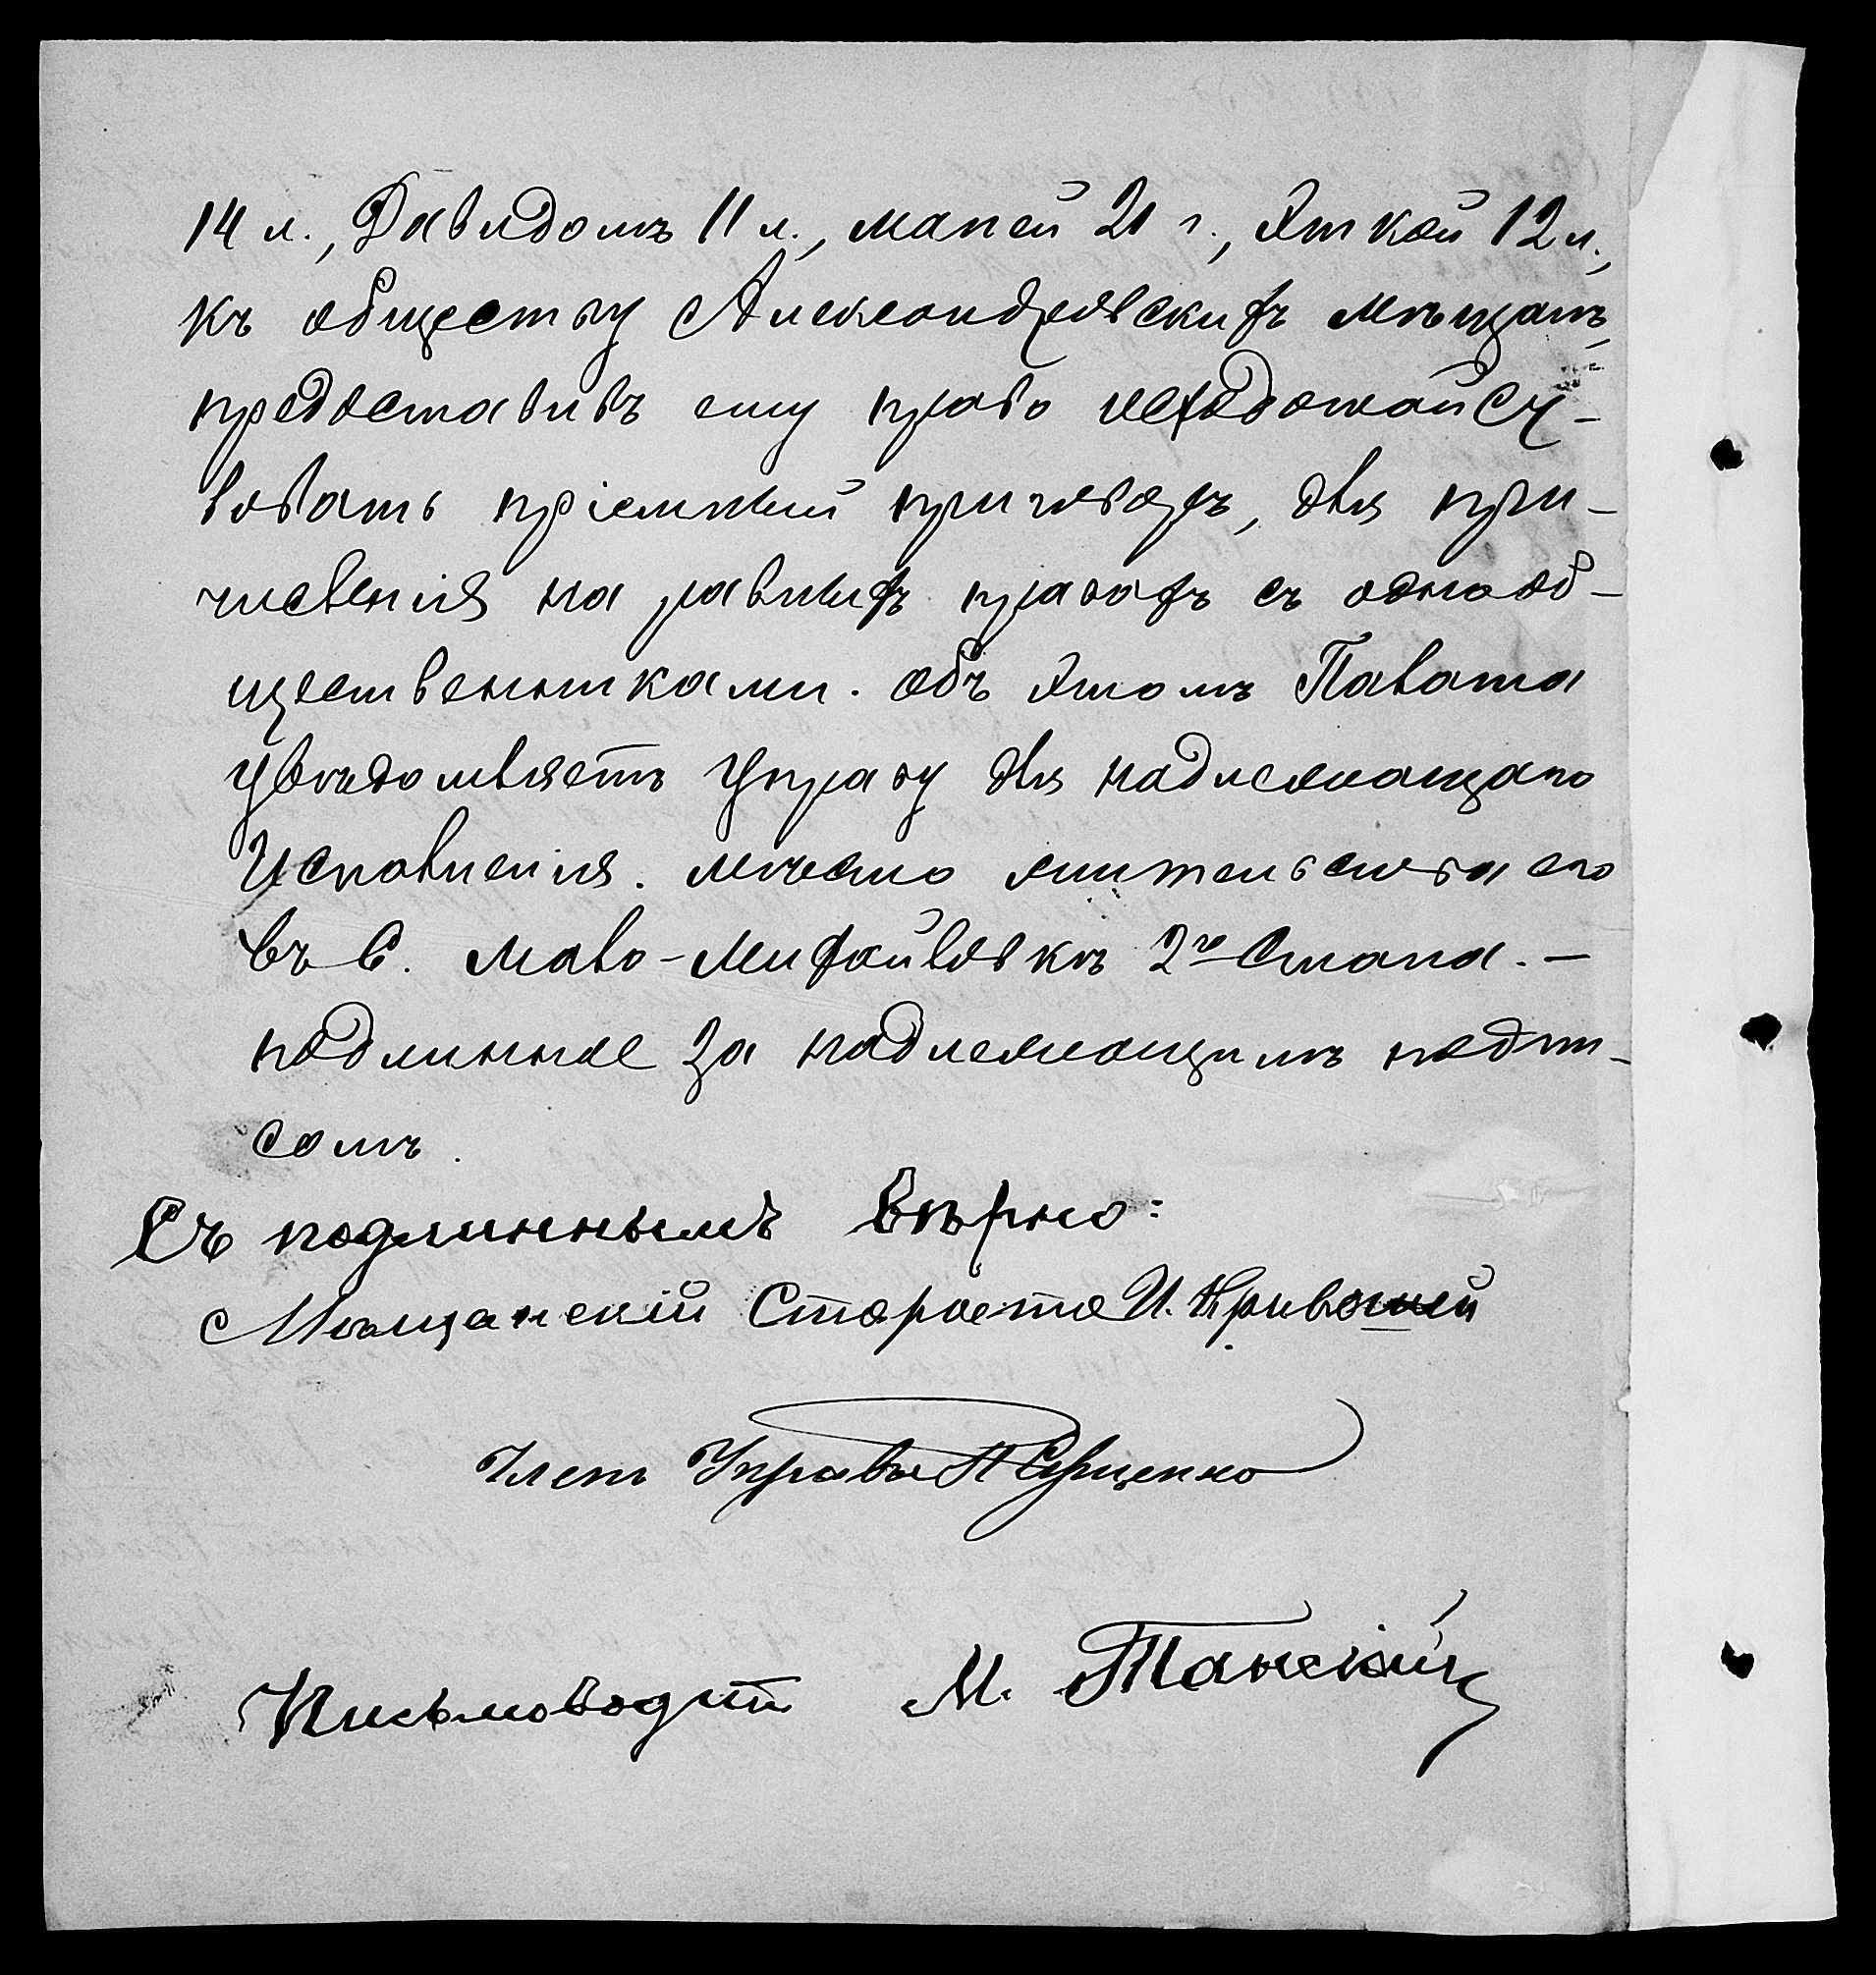 14 л., Давидомъ 11 л., Маней 21 г., Эткой 12 л.,
къ обществу Александровскихъ мѣщанъ,
предоставивъ ему право исходотайст-
вовать пріемный приговоръ, для при-
численія на равныхъ правахъ съ однооб-
щественниками. Объ этомъ Палата
увѣдомляетъ Управу для надлежащаго
исполненія. Мѣсто жительства его
въ с. Мало-Михайловкѣ 2го Стана. —
подлинное за надлежащимъ подпи-
сомъ.
Съ подлиннымъ Вѣрно:
Мѣщанскій Староста И.
Членъ Управы
Письмоводит М. Танскій